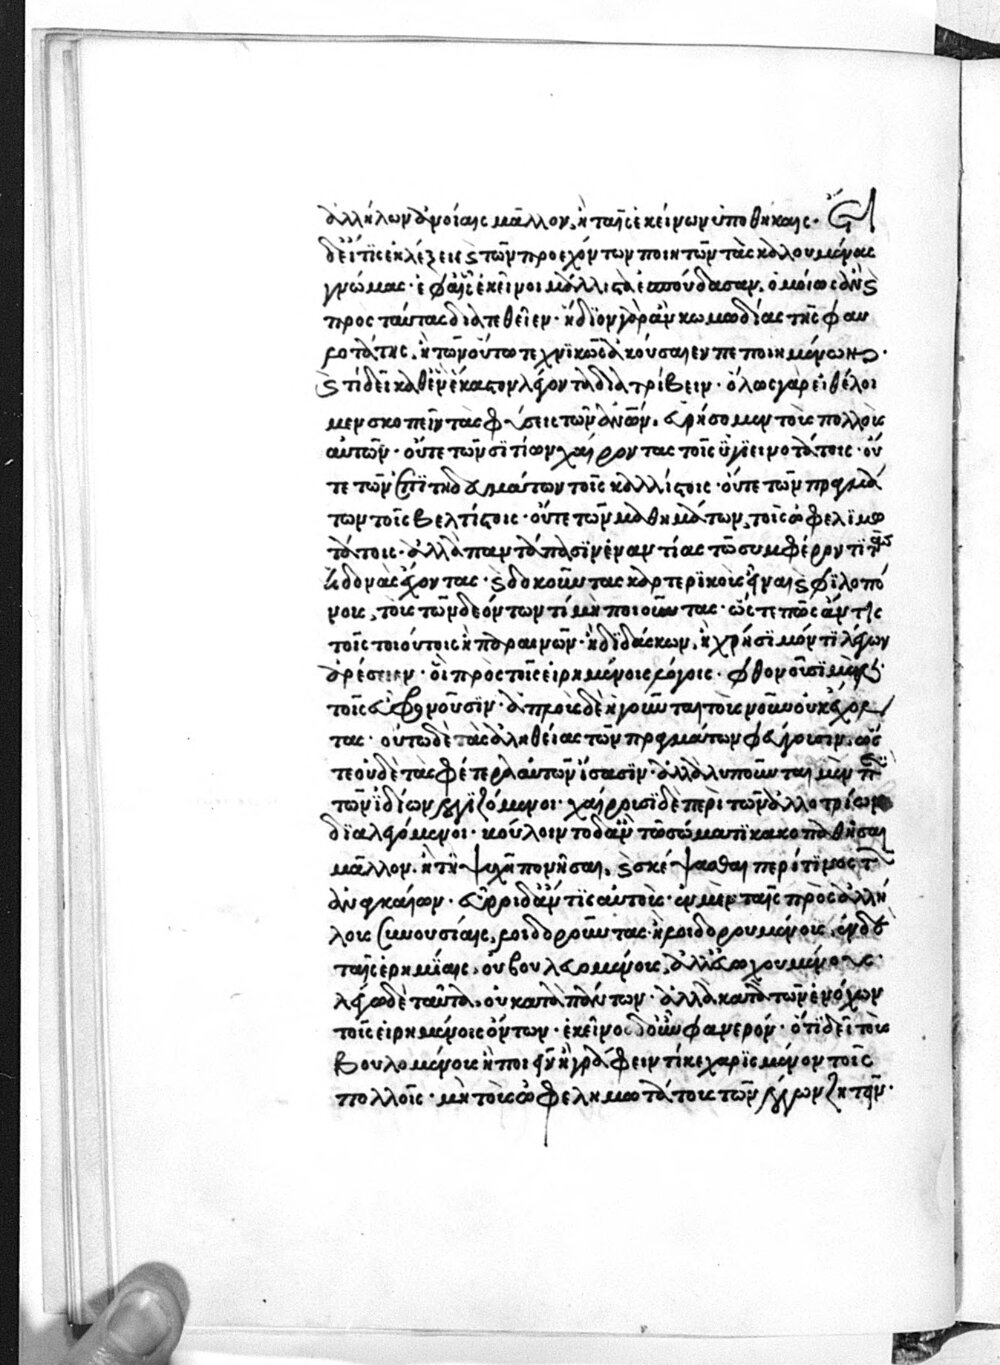 ἀλλήλων ἀνοίαις μᾶλλον, ἢ ταῖς ἐκείνων ὑποθήκαις· ἔτι
δ' εἴ τις ἐκλέξειε καὶ τῶν προεχόντων ποιητῶν τὰς καλουμένας
γνώμας· ἐφ' αἷς ἐκεῖνοι μάλλιστα ἐσπούδασαν, ὁμοίως ἂν καὶ
πρὸς ταύτας διατεθεῖεν· ἥδιον γὰρ ἂν κωμωδίας τῆς φαυ
λοτάτης, ἢ τῶν οὕτω τεχνικῶς ἀκούσαιεν πεποιημένων·
καὶ τί δεῖ καθ' ἓν ἕκαστον λέγοντα διατρίβειν· ὅλως γὰρ εἰ θέλοι
μεν σκοπεῖν τὰς φύσεις τῶν ἀνων, εὑρήσομεν τοὺς πολλοὺς
αὐτῶν· οὔτε τῶν σιτίων χαίροντας τοῖς ὑγιεινοτάτοις· οὔ
τε τῶν ἐπιτηδευμάτων τοῖς καλλίστοις· οὔτε τῶν πραγμά
των τοῖς βελτίστοις· οὔτε τῶν μαθημάτων, τοῖς ὠφελιμω
τάτοις· ἀλλὰ παντάπασιν ἐναντίας τῶ συμφέροντι τὰς
ἡδονὰς ἔχοντας· καὶ δοκοῦντας καρτερικοὺς εἶναι καὶ φιλοπό
νους, τοὺς τῶν δεόντων τί μὴ ποιοῦντας· ὥστε πῶς ἄν τις
τοῖς τοιούτοις ἢ παραινῶν· ἢ διδάσκων, ἢ χρήσιμόν τι λέγων
ἀρέσειεν· οἳ πρὸς τοῖς εἰρημένοις λόγοις· φθονοῦσι μὲν
τοῖς εὖ φρονοῦσιν· ἁπλοῦς δὲ ἡγοῦνται τοὺς νοῦν οὐκ ἔχον
τας· οὕτω δὲ τὰς ἀληθείας τῶν πραγμάτων φεύγουσιν, ὥς
τε οὐδὲ τὰ σφέτερα αὐτῶν ἴσασιν· ἀλλὰ λυποῦνται μὲν περὶ
τῶν ἰδίων λογιζόμενοι· χαίρουσι δὲ περὶ τῶν ἀλλοτρίων
διαλεγόμενοι· βούλοιντο δ' ἂν τῶ σώματι κακοπαθῆσαι
μᾶλλον, ἢ τῆ ψυχῆ πονῆσαι, καὶ σκέψασθαι περί τινος τῶν
ἀναγκαίων· εὕροι δ' ἄν τις αὐτοὺς· ἐν μὲν ταῖς πρὸς ἀλλή
λους συνουσίαις, λοιδοροῦντας· ἢ λοιδορουμένους, ἐν δὲ
ταῖς ἐρημίαις, οὐ βουλευομένους, ἀλλ' εὐχομένους·
λέγω δὲ ταῦτα, οὐ κατὰ πάντων· ἀλλὰ κατὰ τῶν ἐνόχων
τοῖς εἰρημένοις ὄντων· ἐκεῖνο δ' οὖν φανερόν· ὅτι δεῖ τοὺς
βουλομένους ἢ ποιεῖν ἢ γράφειν τί κεχαρισμένον τοῖς
πολλοῖς· μὴ τοὺς ὠφελημωτάτους τῶν λόγων ζητεῖν·